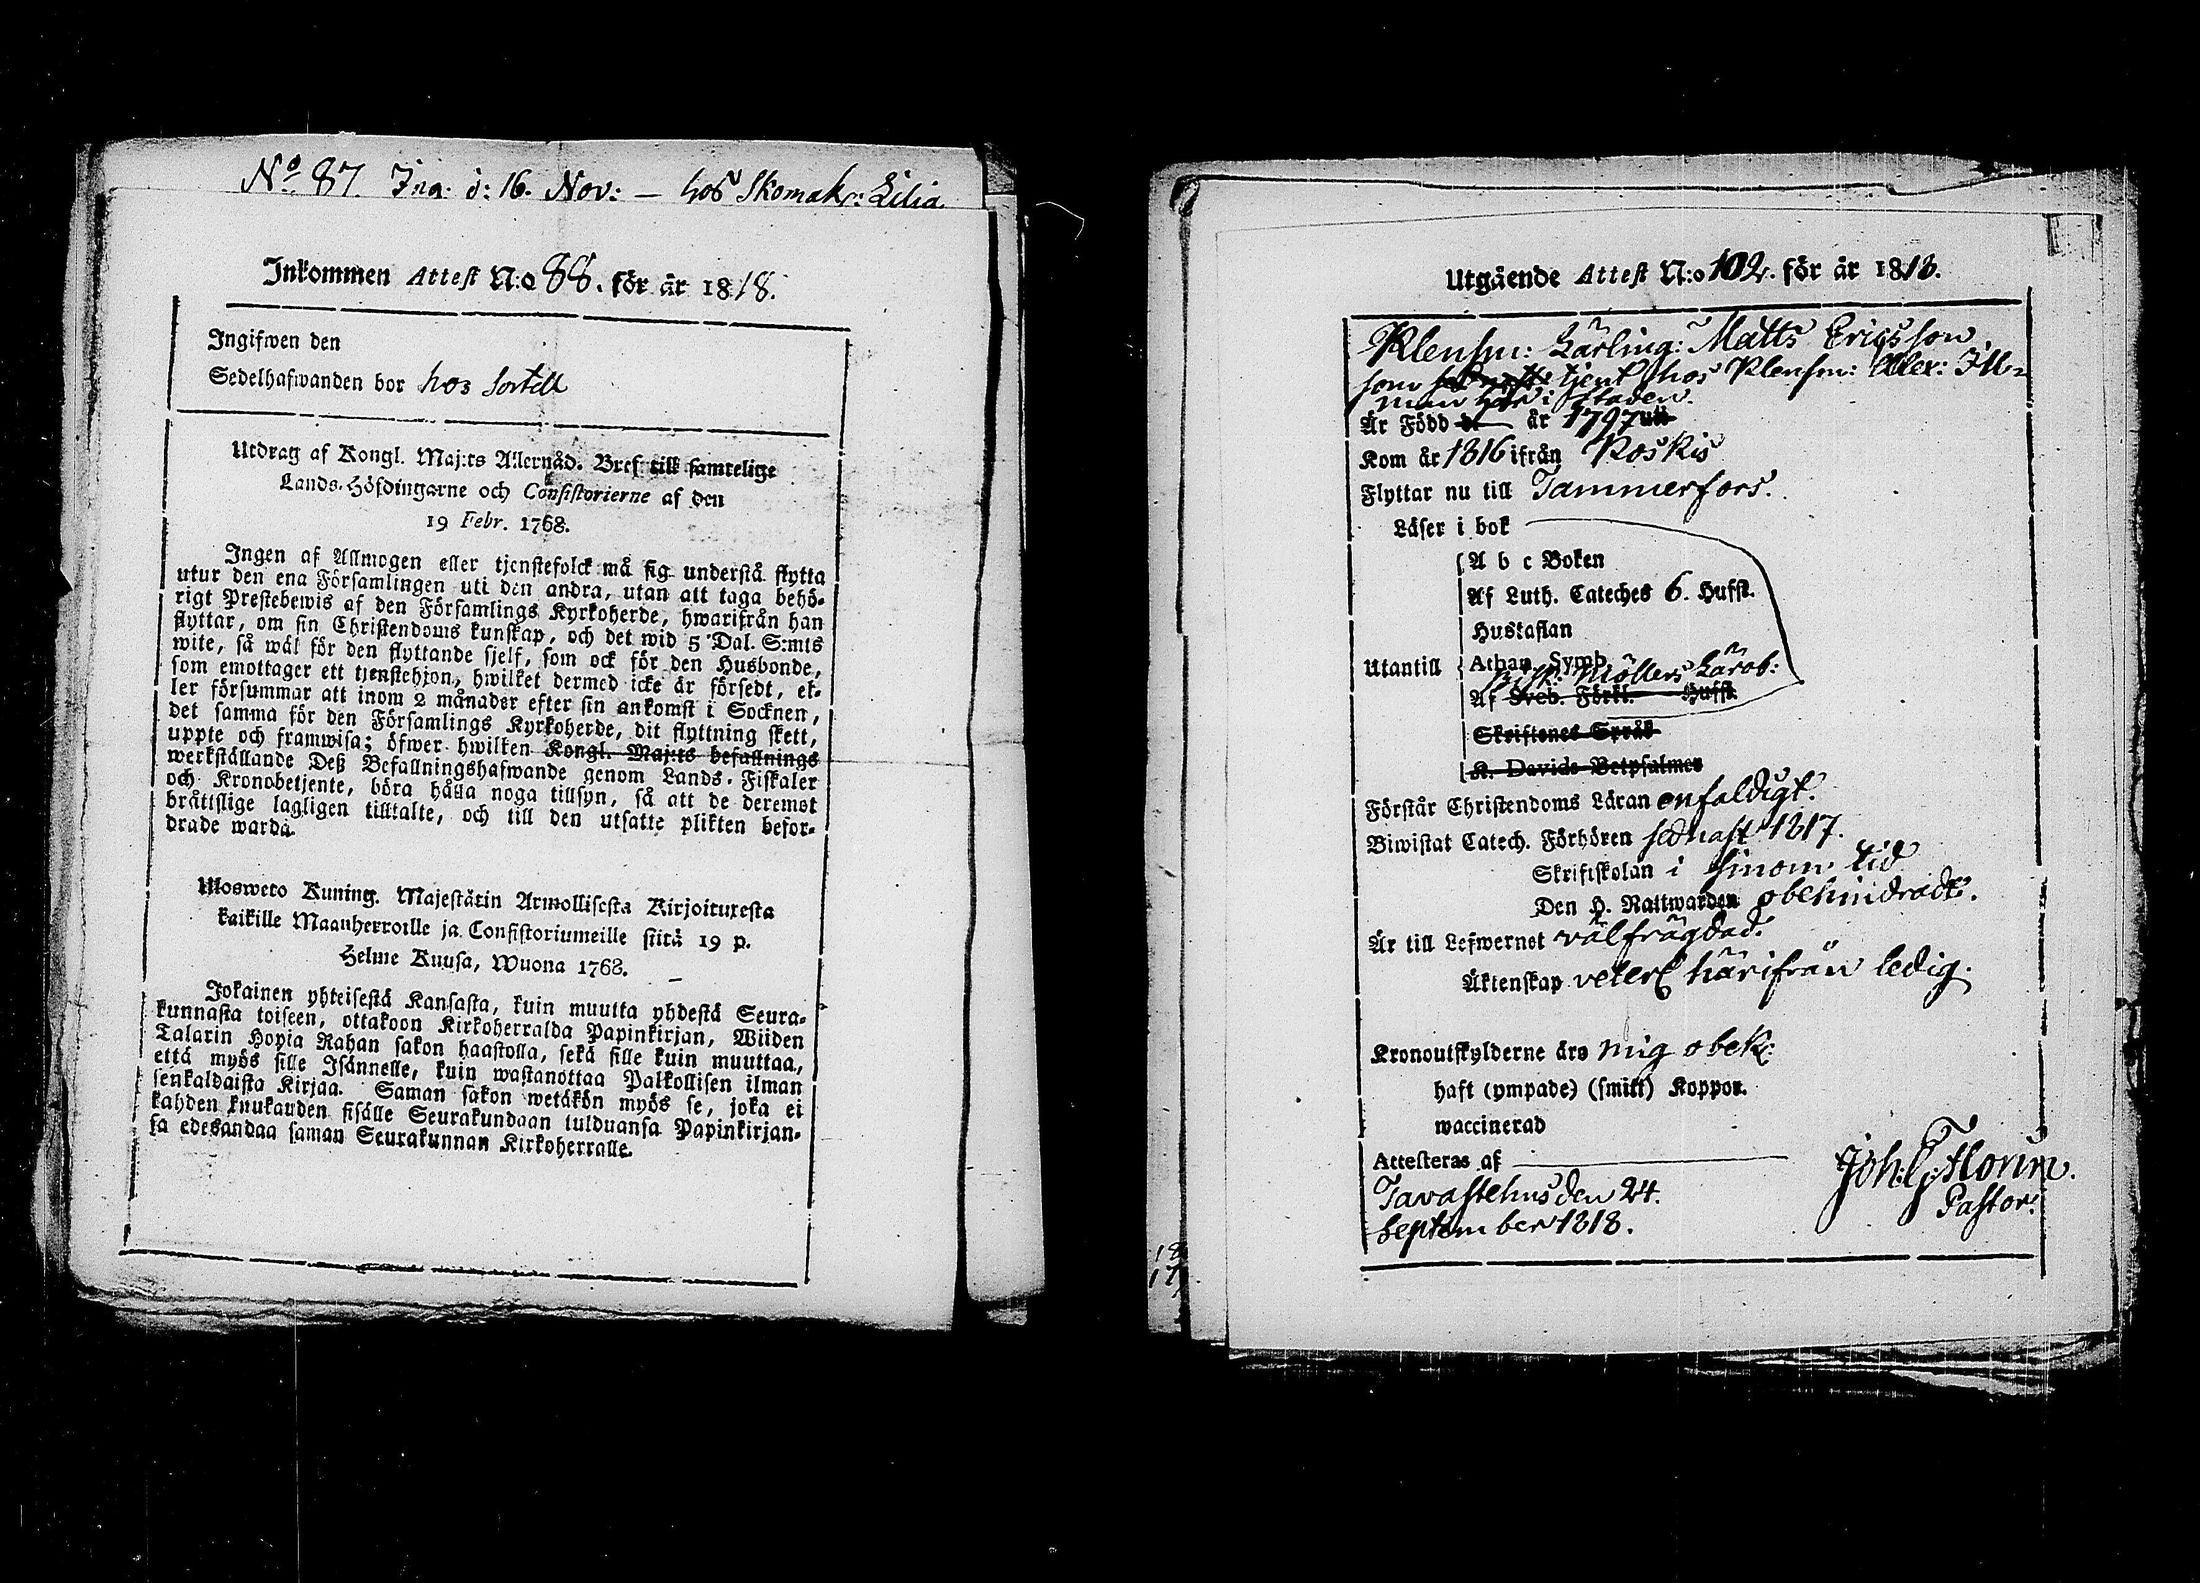 No 87. Ina. d: 16. Nov: — hos Skomak: Lilia
Inkommen Attest N:o 88. för år 1818.
Ingifwen den
Sedelhafwanden bor hos Sortell
Utdrag af Kongl. Maj:ts Allernåd. Bref till samtelige
Lands-Höfdingarne och Consistorierne af den
19 Febr. 1768.
Ingen af Allmogen eller tjenstefolck må sig understå flytta
utur den ena Församlingen uti den andra, utan att taga behö-
rigt Prestebewis af den Församlings Kyrkoherde, hwarifrån han
flyttar, om sin Christendoms kunskap, och det wid 5 Dal. S:mts
wite, så wäl för den flyttande sjelf, som ock för den Husbonde,
som emottager ett tjenstehjon, hwilket dermed icke är försedt, el-
ler försummar att inom 2 månader efter sin ankomst i Socknen,
det samma för den Församlings Kyrkoherde, dit flyttning skett,
uppte och framwisa; öfwer hwilken Kongl. Maj:ts befallnings
werkställande Deß Befallningshafwande genom Lands-Fiskaler
och Kronobetjente, böra hålla noga tillsyn, så att de deremot
bråttslige lagligen tilltalte, och till den utsatte plikten befor-
drade warda.
Uloswето Kuning. Majestätin Armollisesta Kirjoituxesta
kaikille Maanherroille ja Consistoriumeille siitä 19 p.
Helme Kuusa, Wuona 1768.
Jokainen yhteisestä Kansasta, kuin muutta yhdestä Seura-
kunnasta toiseen, ottakoon Kirkoherralda Papinkirjan, Wiiden
Talarin Hopia Rahan sakon haastolla, sekä sille kuin muuttaa,
että myös sille Isännelle, kuin wastanottaa Palkollisen ilman
senkaldaista Kirjaa. Saman sakon wetäkön myös se, joka ei
kahden kuukauden sisälle Seurakundaan tulduansa Papinkirjan-
sa edesandaa saman Seurakunnan Kirkoherralle.
Utgående Attest N:o 102. för år 1818.
Klensm: Lärling: Matts Ericsson
som tjent hos Klensm: Alex: Ill-
man här i staden.
Är Född d. år 1797 uti
Kom år 1816 ifrån Koskis
Flyttar nu till Tammerfors.
Läser i bok
A b c Boken
Af Luth. Cateches 6. Hufst.
Hustaflan
Utantill Athan. Symb.
Bisk: Möllers Lärob:
Af Sveb. Förkl. Hufst.
Skriftenes Språk
K. Davids Botpsalmer
Förstår Christendoms Läran enfaldigt.
Biwistat Catech. Förhören sednast 1817.
Skriftskolan i sinom tid
Den H. Nattwarden obehindradt.
Är till Lefwernet välfrägdad.
Äktenskap veterl härifrån ledig.
Kronoutskylderne äro mig obek:
haft (ympade) (smitt) Koppor.
waccinerad
Attesteras af
Tavastehus den 24.
September 1818.
Joh: G: Florin.
Pastor.
18
17